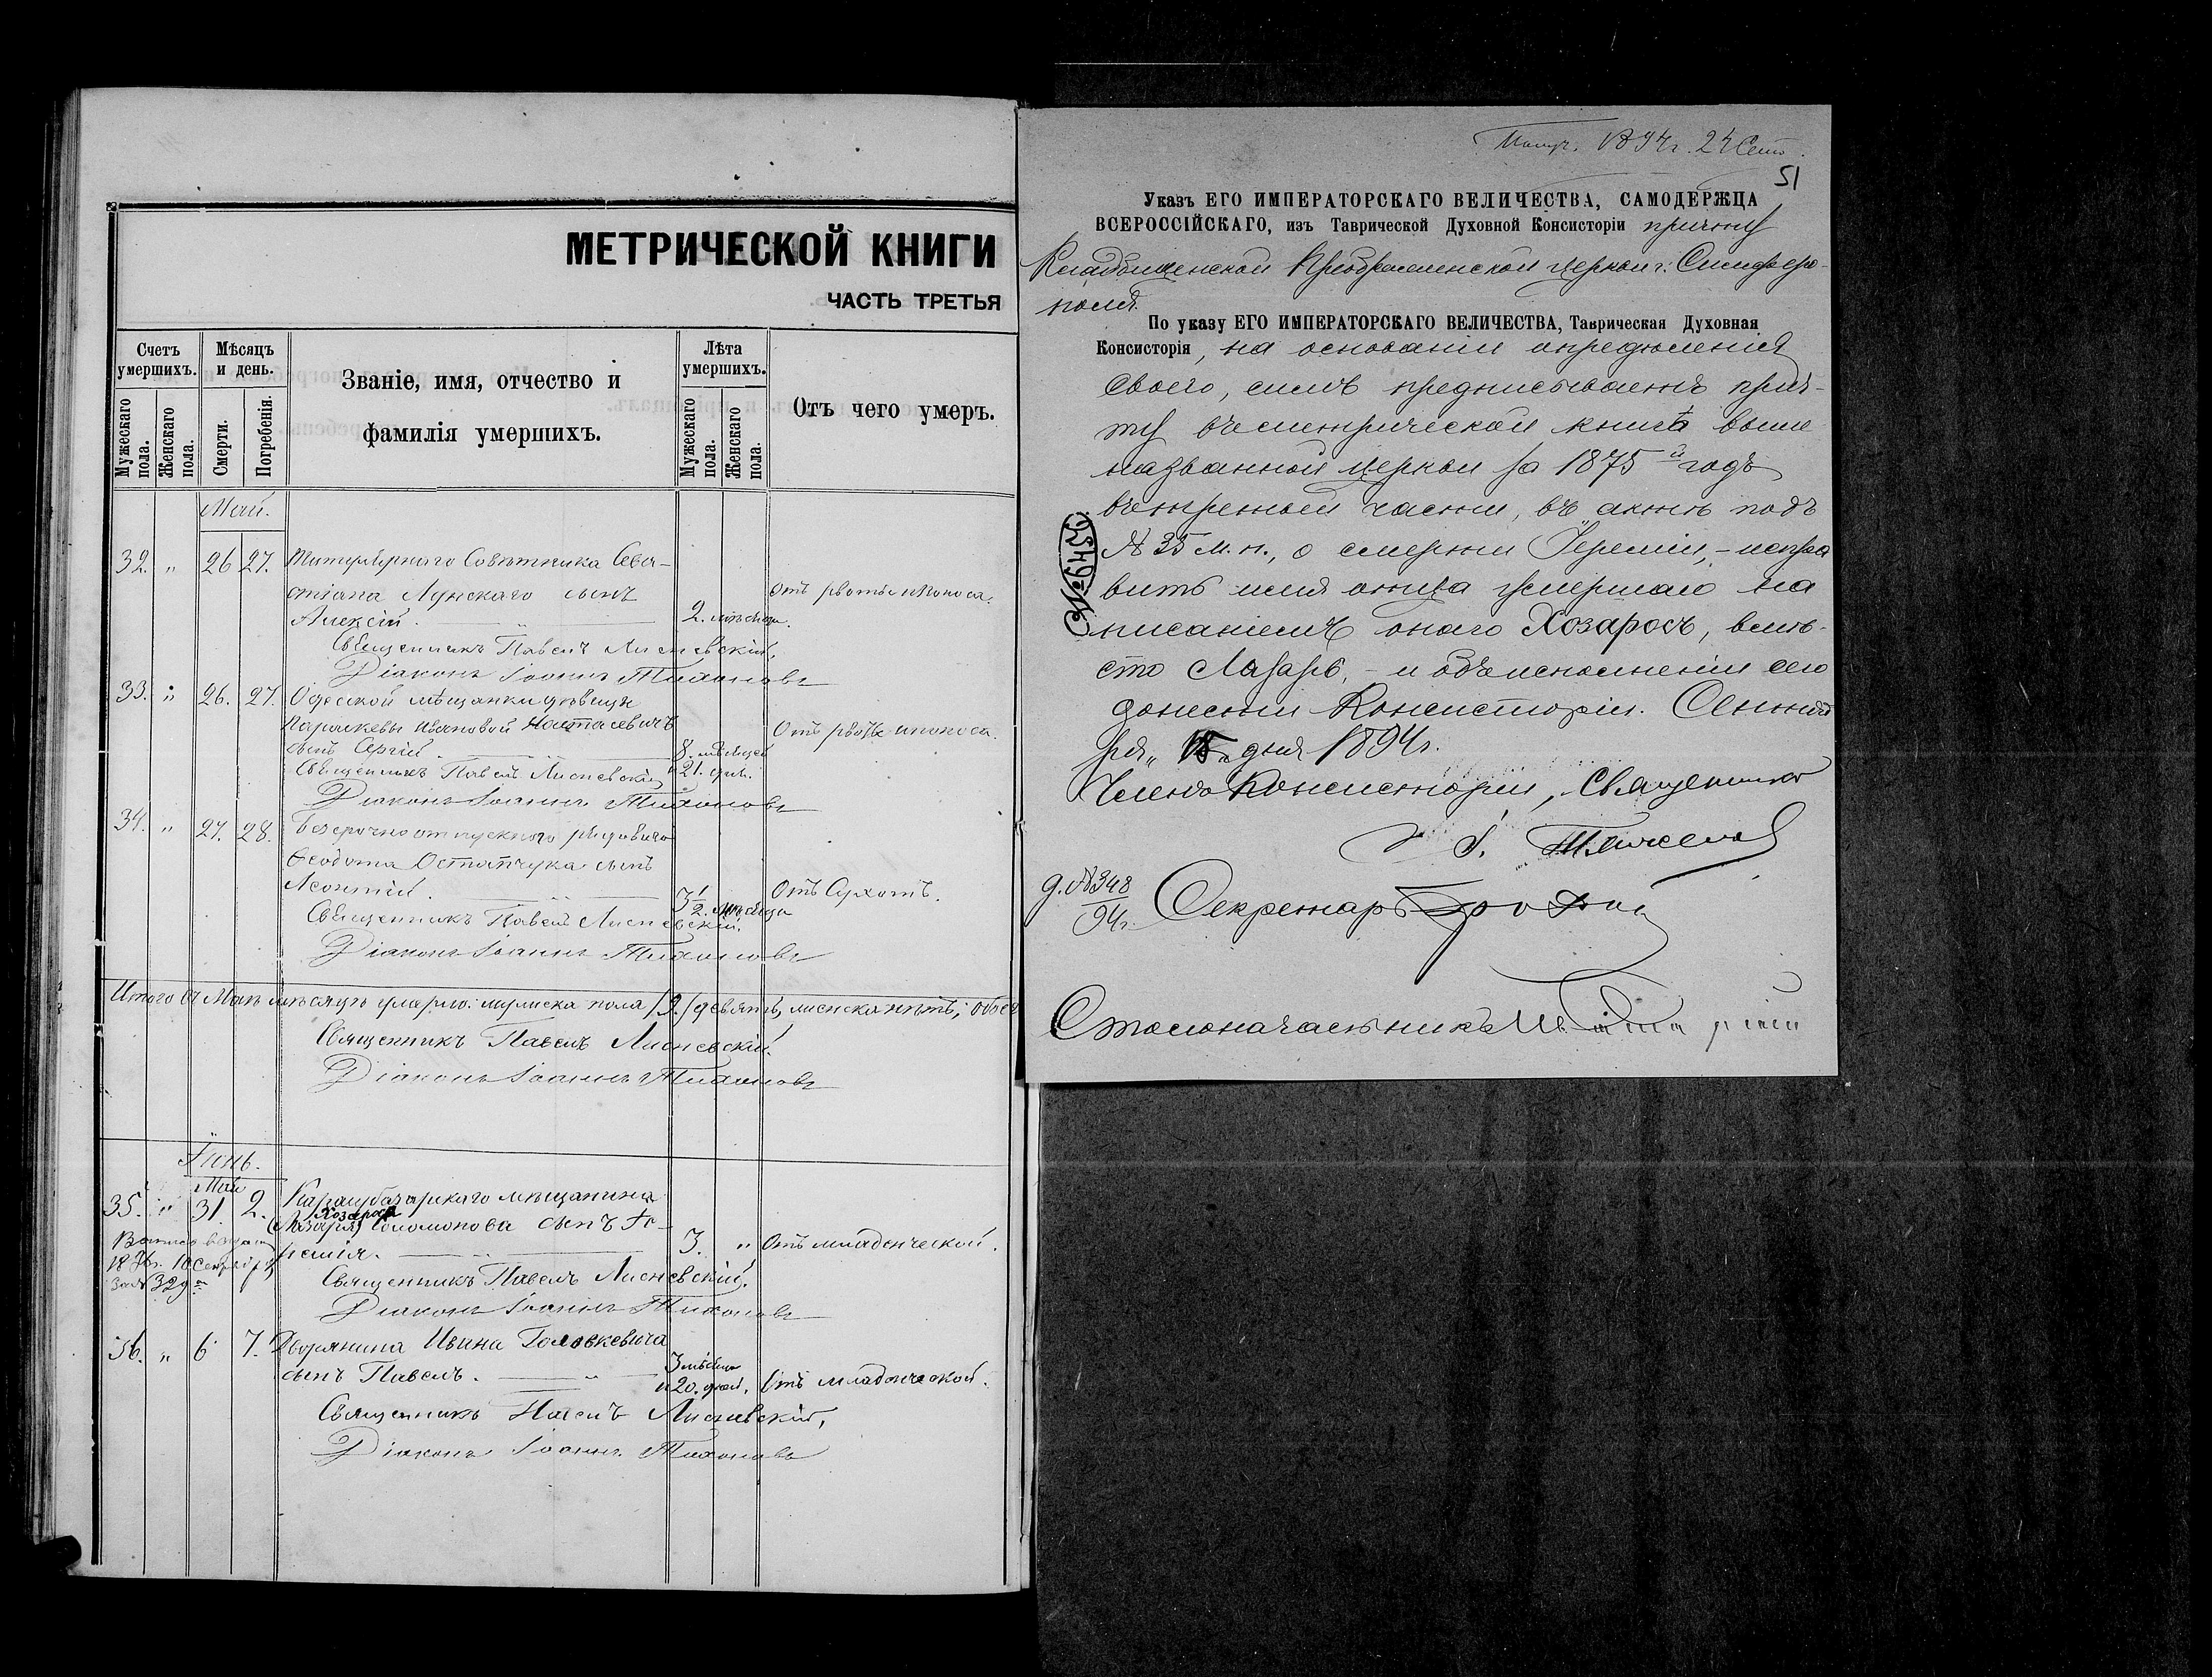 МЕТРИЧЕСКОЙ КНИГИ
ЧАСТЬ ТРЕТЬЯ
Счетъ умершихъ.
Мужескаго пола.
Женскаго пола.
Мѣсяцъ и день.
Смерти.
Погребенія.
Званіе, имя, отчество и
фамилія умершихъ.
Лѣта умершихъ.
Мужескаго пола.
Женскаго пола.
Отъ чего умеръ.
Май.
32. " 26 27. Титулярнаго Совѣтника Сева-
стіана Лунскаго сынъ
Алексій. 2. мѣсяца. отъ рвоты и поноса.
Священникъ Павелъ Лисневскій.
Діаконъ Іоаннъ Тихоновъ
33. " 26. 27. Одесской мѣщанки дѣвицы
Параскевы Ивановой
сынъ Сергій 8. мѣсяцев и 21. день. Отъ рвоты и поноса.
Священникъ Павелъ Лисневскій
Діаконъ Іоаннъ Тихоновъ
34. " 27. 28. Безсрочно отпускного рядового
Феодота Остапчука сынъ
Леонтій. 3 1/2. мѣсяца Отъ Сухотъ.
Священникъ Павелъ Лисневскій.
Діаконъ Іоаннъ Тихоновъ
Итого въ Маѣ мѣсяцѣ умерло: мужеска пола /9./ девять, женска нѣтъ; обоего
Священникъ Павелъ Лисневскій.
Діаконъ Іоаннъ Тихоновъ
Іюнь.
Май
35. " 31. 2. Карасубазарскаго мѣщанина
Хозароса
(Лазаря) Соломонова сынъ Іе-
ремія. 3. " Отъ младенческой.
18 г. 10 Сентября
за № 329
Священникъ Павелъ Лисневскій.
Діаконъ Іоаннъ Тихоновъ
36. " 6 7. Дворянина Ивана Головкевича
сынъ Павелъ. 3 мѣсяца и 20. дней, Отъ младенческой.
Священникъ Павелъ Лисневскій,
Діаконъ Іоаннъ Тихоновъ
Получ. 1894 г. 24 Сент.
51
Указъ ЕГО ИМПЕРАТОРСКАГО ВЕЛИЧЕСТВА, САМОДЕРЖЦА
ВСЕРОССІЙСКАГО, изъ Таврической Духовной Консисторіи причту
Кладбищенской Преображенской церкви г. Симферо-
поля.
По указу ЕГО ИМПЕРАТОРСКАГО ВЕЛИЧЕСТВА, Таврическая Духовная
Консисторія, на основаніи опредѣленія
своего, симъ предписываетъ прич-
ту въ метрической книгѣ выше
названной церкви за 1875й годъ
въ третьей части, въ актѣ подъ
№ 35 м. п., о смерти Іереміи, - испра
вить имя отца умершаго на
писаніемъ онаго Хозаросъ, вмѣ-
сто Лазарь, - и объ исполненіи сего
донести Консисторіи. Сентяб
ря " 15 " дня 1894 г.
Членъ Консисторіи, Священникъ
№ 9452
д. № 348
94 г.
Секретарь
Столоначальникъ